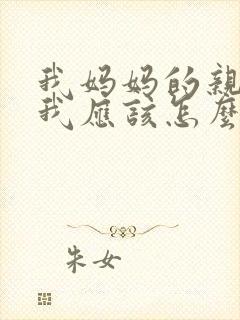 我妈妈的親
我应该怎麼
朱女